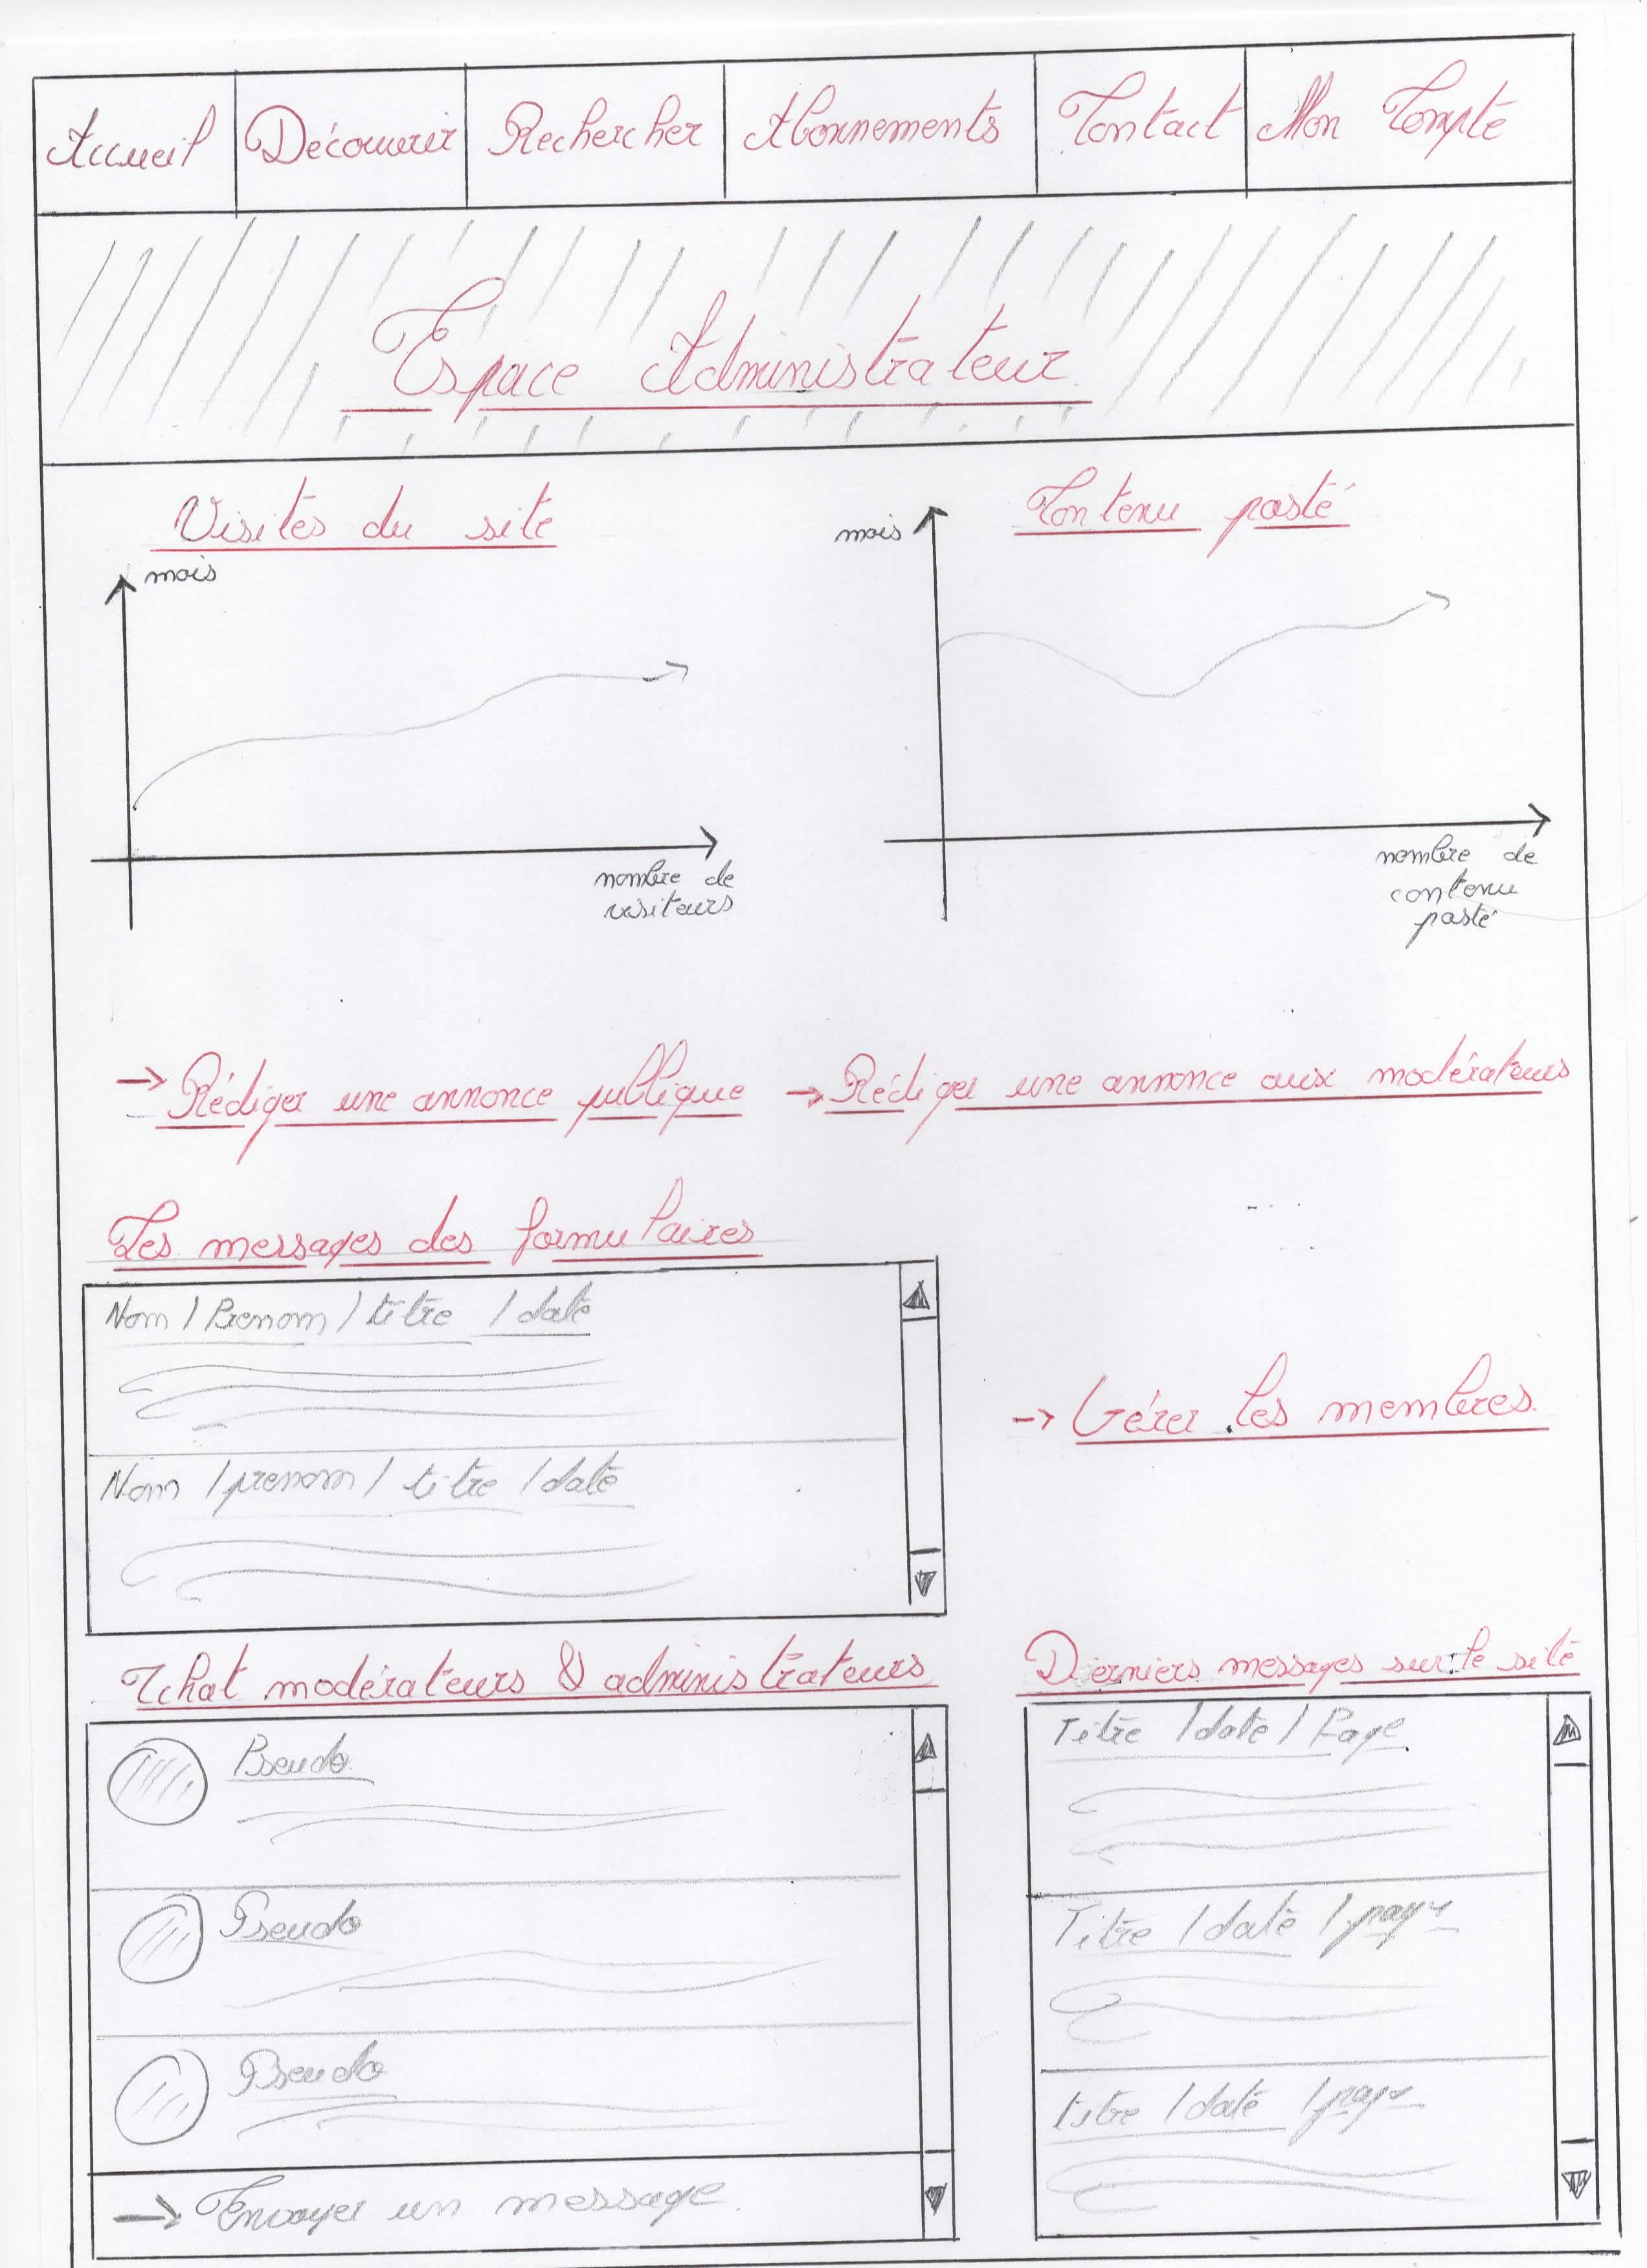 Accueil Découvrir Rechercher Abonnements Contact Mon Compte
Espace Administrateur
Visites du site
mois
nombre de
visiteurs
Contenu posté
mois
nombre de
contenu
posté
→ Rédiger une annonce publique → Rédiger une annonce aux modérateurs
Les messages des formulaires
Nom / Prenom / titre / date
Nom / prenom / titre / date
→ Gérer les membres
Tchat modérateurs & administrateurs
Pseudo
Pseudo
Pseudo
→ Envoyer un message
Derniers messages sur le site
Titre / date / Page
Titre / date / page
titre / date / page